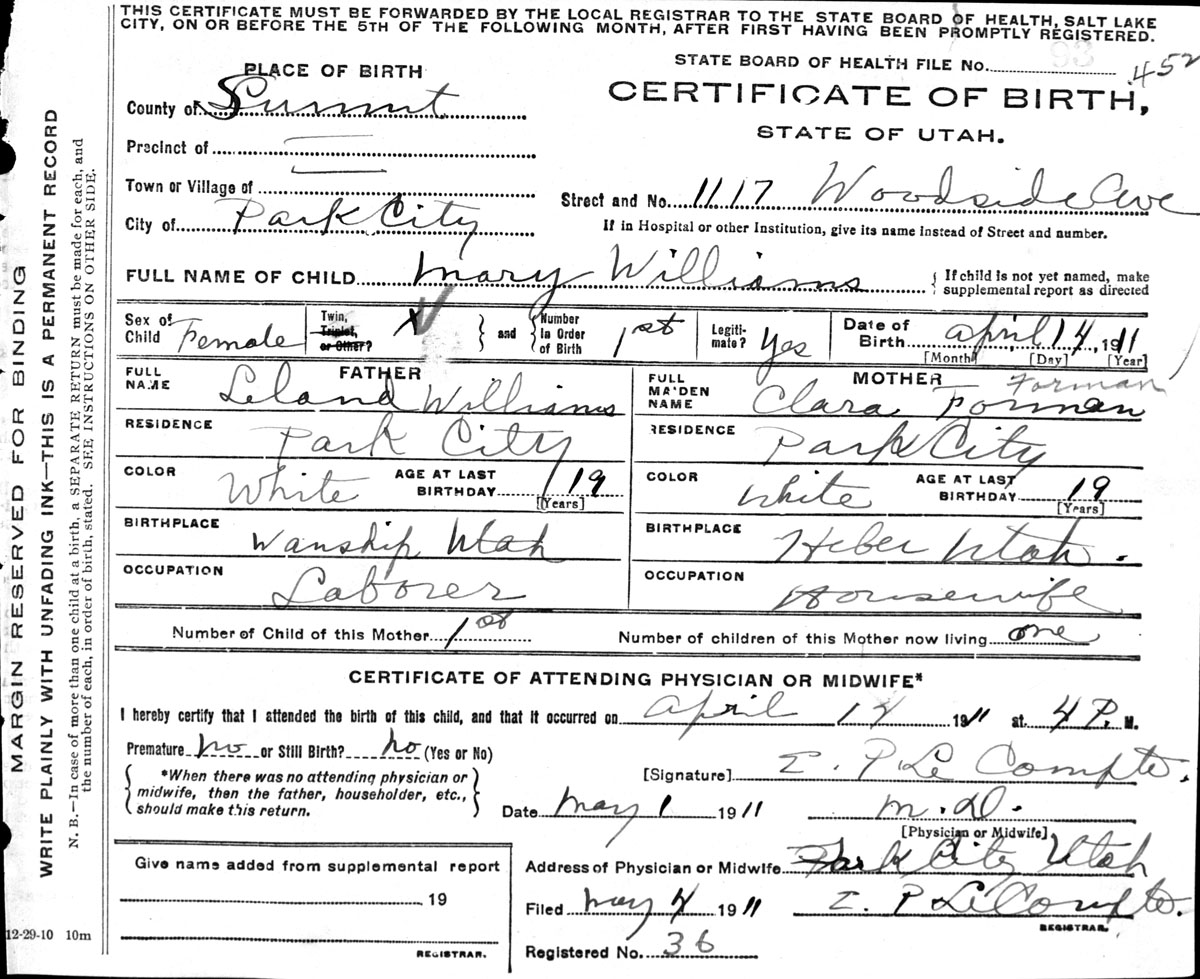 THIS CERTIFICATE MUST BE FORWARDED BY THE LOCAL REGISTRAR TO THE STATE BOARD OF HEALTH, SALT LAKE
CITY, ON OR BEFORE THE 5TH OF THE FOLLOWING MONTH, AFTER FIRST HAVING BEEN PROMPTLY REGISTERED.
MARGIN RESERVED FOR BINDING
WRITE PLAINLY WITH UNFADING INK—THIS IS A PERMANENT RECORD
N. B.—In case of more than one child at a birth, a SEPARATE RETURN must be made for each, and
the number of each, in order of birth, stated. SEE INSTRUCTIONS ON OTHER SIDE.
12-29-10 10m
PLACE OF BIRTH
County of Summit
Precinct of
Town or Village of
City of Park City
STATE BOARD OF HEALTH FILE NO. 93 452
CERTIFICATE OF BIRTH,
STATE OF UTAH.
Street and No. 1117 Woodside Ave
If in Hospital or other Institution, give its name instead of Street and number.
FULL NAME OF CHILD Mary Williams { If child is not yet named, make
supplemental report as directed
Sex of
Child Female
Twin,
Triplet,
or Other? X
} and {
Number
in Order
of Birth 1st
Legiti-
mate? Yes
Date of
Birth April 14, 1911
[Month] [Day] [Year]
FATHER
FULL
NAME Leland Williams
RESIDENCE Park City
COLOR White AGE AT LAST
BIRTHDAY 19
[Years]
BIRTHPLACE Wanship Utah
OCCUPATION Laborer
MOTHER Forman
FULL
MAIDEN
NAME Clara Forman
RESIDENCE Park City
COLOR White AGE AT LAST
BIRTHDAY 19
[Years]
BIRTHPLACE Heber Utah.
OCCUPATION Housewife
Number of Child of this Mother 1st Number of children of this Mother now living one
CERTIFICATE OF ATTENDING PHYSICIAN OR MIDWIFE*
I hereby certify that I attended the birth of this child, and that it occurred on April 14 1911 at 4 P. M.
Premature no or Still Birth? no (Yes or No)
{ *When there was no attending physician or
midwife, then the father, householder, etc.,
should make this return. }
[Signature] E. P. Le Compte.
Date May 1 1911 M. D.
[Physician or Midwife]
Address of Physician or Midwife Park City Utah
Filed May 4 1911 E. P. Le Compte.
REGISTRAR.
Registered No. 36
Give name added from supplemental report
19
REGISTRAR.